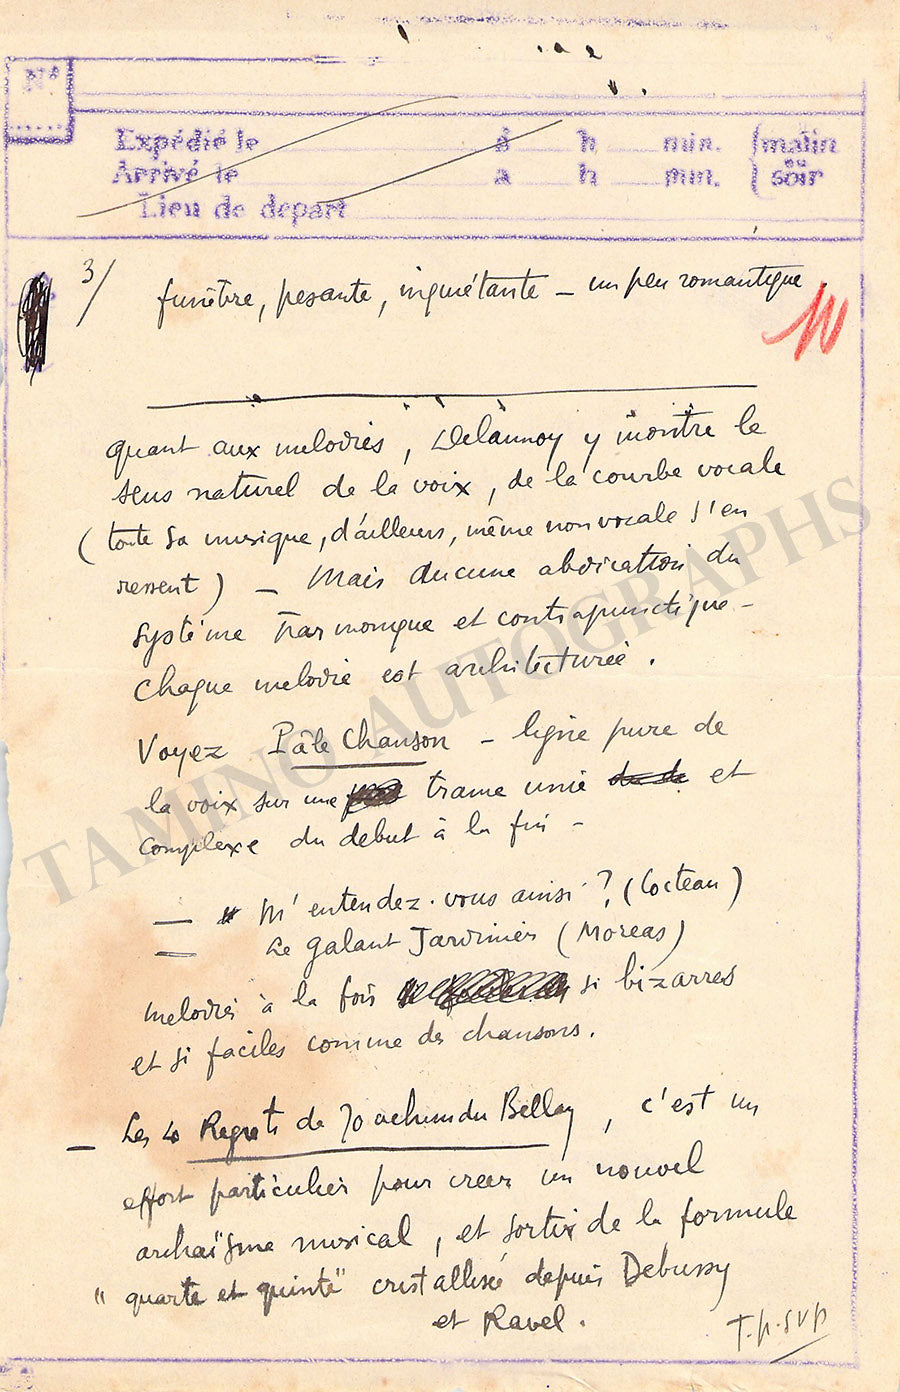 N°
Expédié le à h min. (matin
Arrivé le a h min. ( soir
Lieu de départ
3/
funèbre, pesante, inquiétante – un peu romantique
quant aux melodies, Delannoy y montre le
sens naturel de la voix, de la courbe vocale
(toute sa musique, d'ailleurs, même non vocale s'en
ressent) – Mais aucune abdication du
système harmonique et contrapunctique –
Chaque melodie est architecturée.
Voyez Pâle Chanson – ligne pure de
la voix sur une trame unie et
complexe du debut à la fin –
— M'entendez-vous ainsi ? (Cocteau)
= Le galant Jardinier (Moreas)
melodies à la fois si bizarres
et si faciles comme des chansons.
– Les 4 Regrets de Joachim du Bellay, c'est un
effort particulier pour creer un nouvel
archaïsme musical, et sortir de la formule
"quarte et quinte" cristallisée depuis Debussy
et Ravel.
T.p.svp
TAMINO AUTOGRAPHS